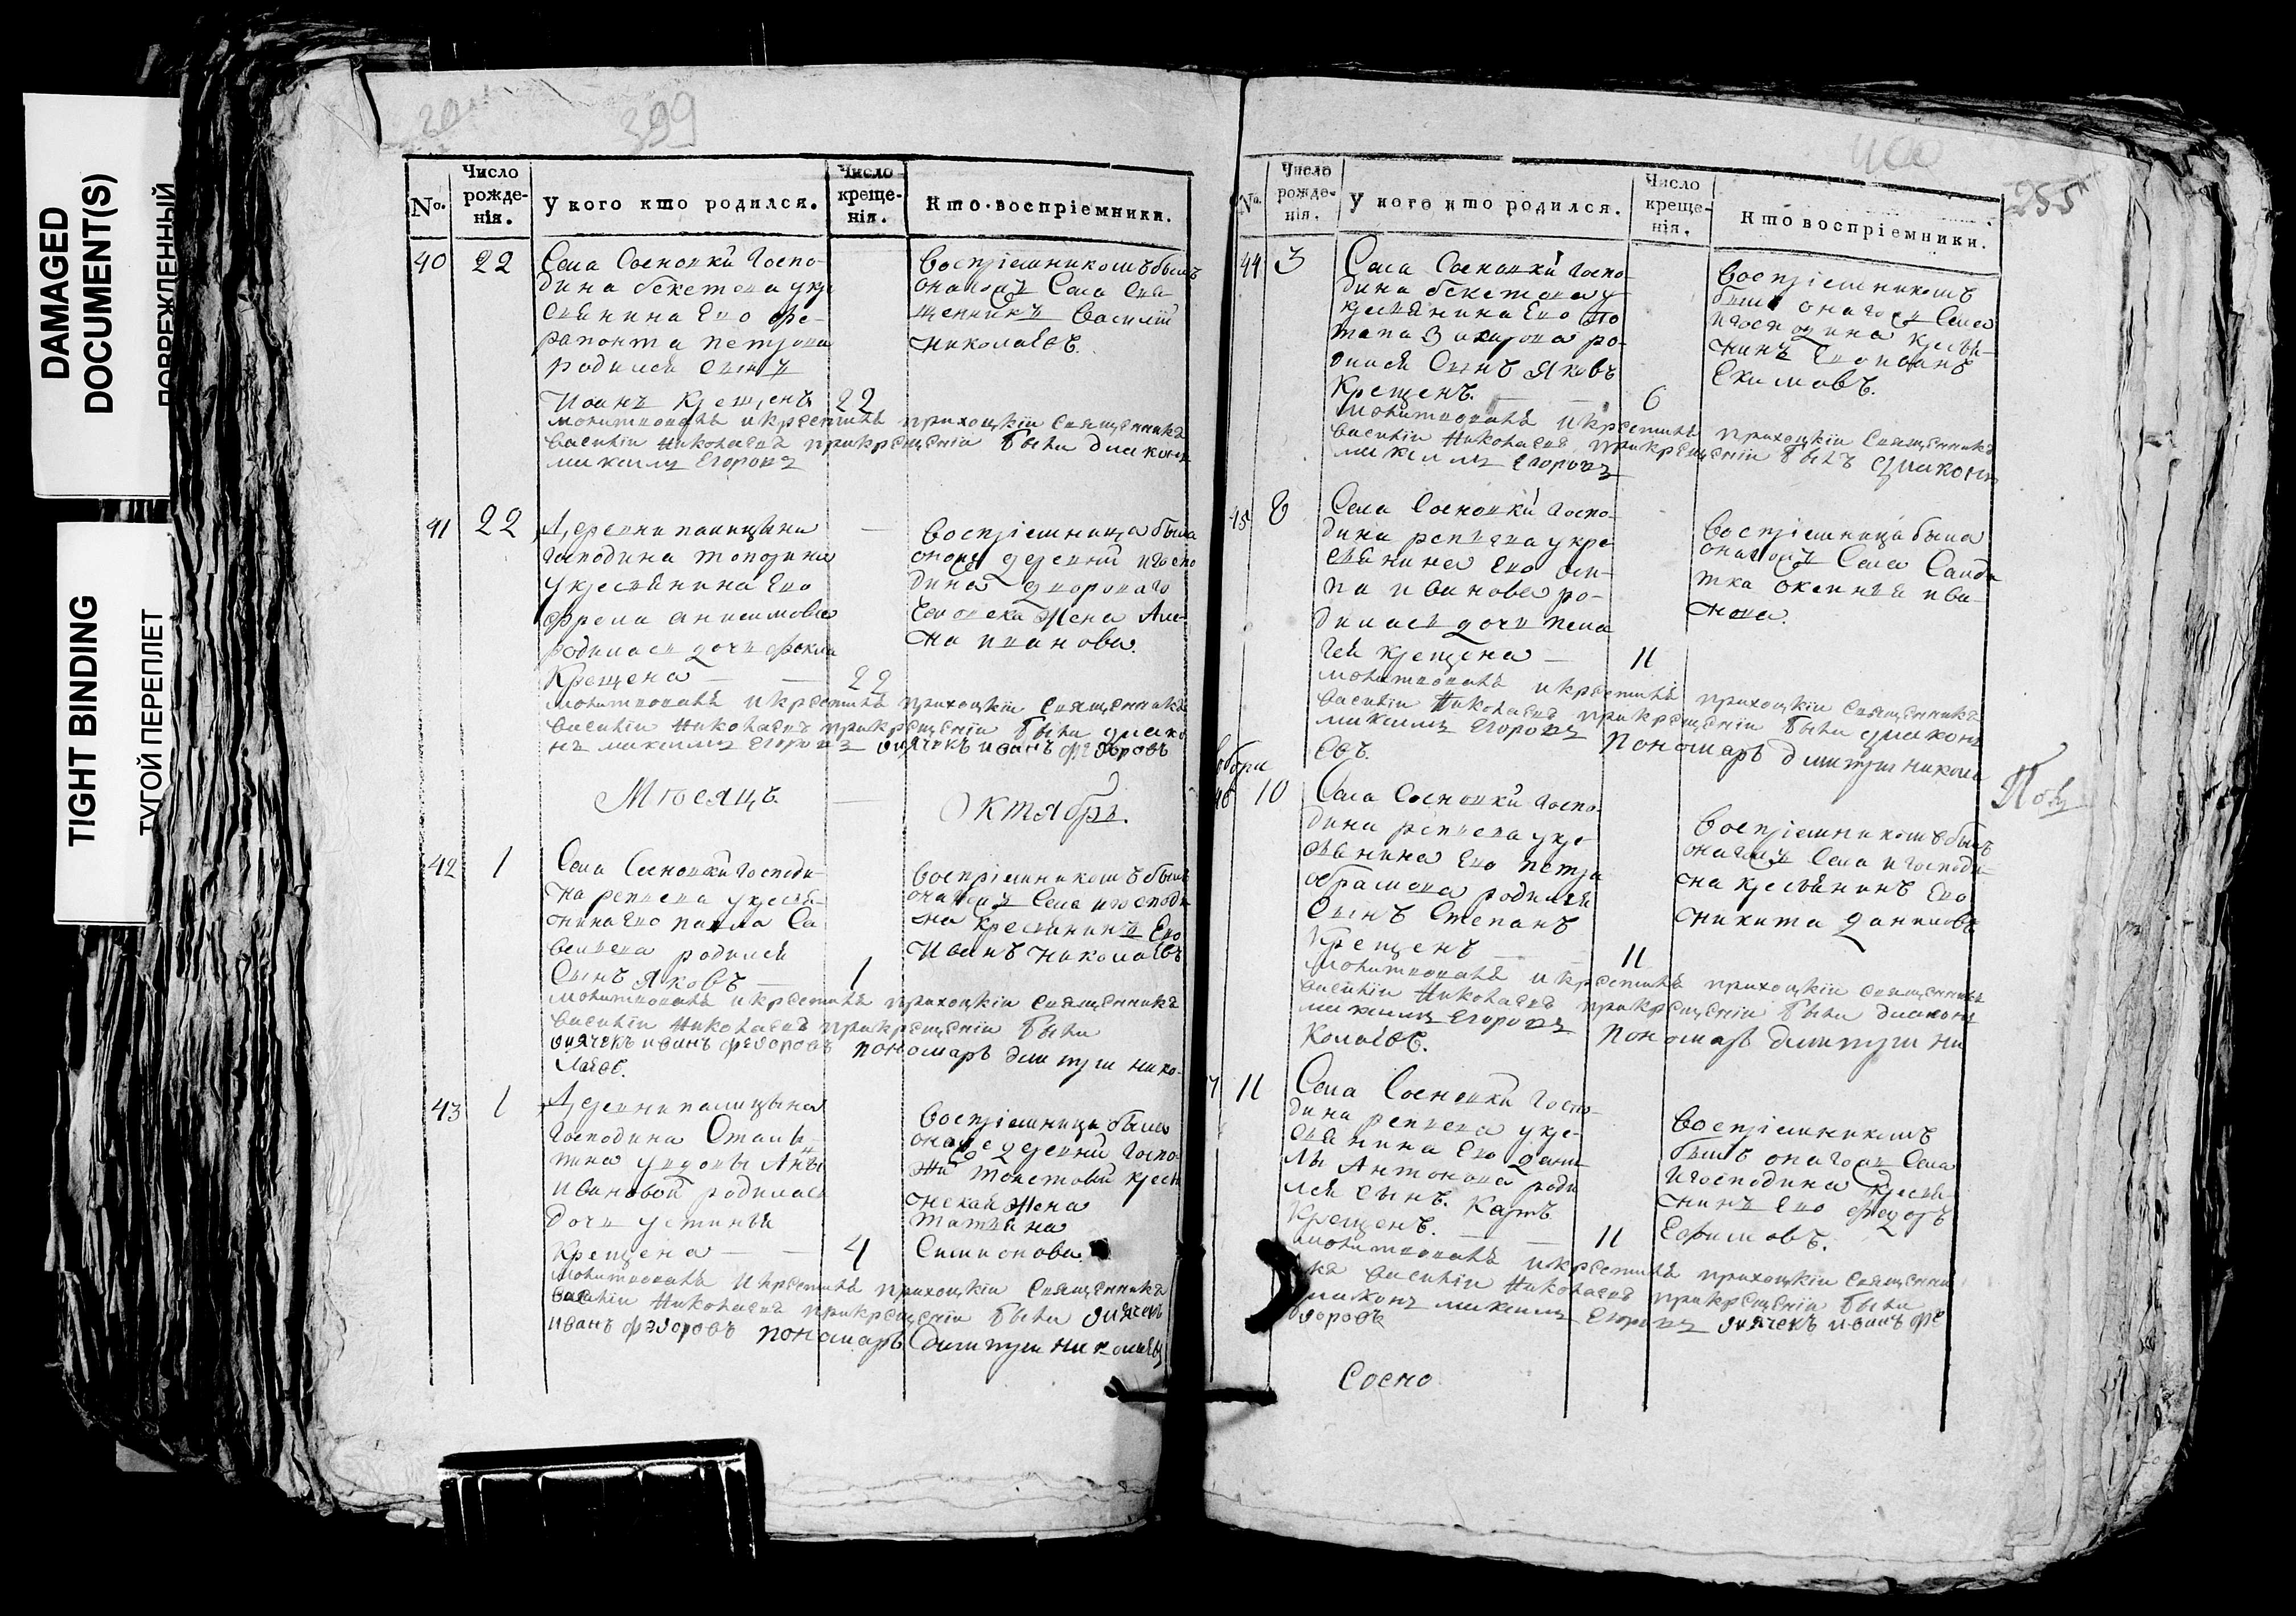 DAMAGED
DOCUMENT(S)
ПОВРЕЖДЕННЫЙ
TIGHT BINDING
ТУГОЙ ПЕРЕПЛЕТ
399
№.
Число рожденія.
У кого кто родился.
Число крещенія.
Кто воспріемники.
40 22
Села Сосновки Госпо-
дина бекетова укре
стьянина Ево фе-
рапонта петрова
родился Сынъ
Иоанъ крещенъ 22
воспріемникомъ былъ
онагожъ Села Свя-
щенникъ Василій
николаевъ.
молитвовалъ икрестилъ прихоцкіи священникъ
василіи николаевъ прикрещеніи были диаконъ
максимъ егоровъ
41 22
Деревни палицына
господина
укрестьянина Ево
фрола анисимова
родилась дочь фекла
Крещена 22
воспріемница была
оной деревни игоспо
дина двороваго
человека жена Ан-
на иванова.
молитвовалъ икрестилъ прихоцкіи священникъ
василіи николаевъ прикрещеніи были диако
нъ максимъ егоровъ дьячекъ иванъ федоровъ
Месяцъ. Октябрь.
42 1
Села Сосновки господи-
на репьева укресть-
янина Ево павла Са
вельева родился
Сынъ Яковъ 1
воспріемникомъ былъ
онагожъ Села игосподи
на крестьянинъ Ево
Иванъ николаевъ
молитвовалъ икрестилъ прихоцкіи священникъ
василіи николаевъ прикрещеніи были
дьячекъ иванъ федоровъ пономарь димитри нико-
лаевъ.
43 1
Деревни палицына
Господина
удовы Аны
ивановой родилась
дочь устинья
Крещена 4
воспріемница была
оное деревни Госпо
жи толстовой кресть
нская жена
татьяна
Симионова
молитвовалъ икрестилъ прихоцкіи священникъ
василіи николаевъ прикрещеніи были дьячекъ
иванъ федоровъ пономарь димитри николаевъ
400
255
№.
Число рожденія.
У кого кто родился.
Число крещенія.
Кто воспріемники.
44 3
Села Сосновки Госпо
дина бекетова у
крестьянина Ево по
тапа Захарова ро-
дился Сынъ Яковъ
Крещенъ. 6
воспріемникомъ
былъ онагожъ Села
игосподина крестья-
нинъ Ево иванъ
Екимовъ.
молитвовалъ икрестилъ прихоцкіи священникъ
василіи николаевъ прикрещеніи былъ диаконъ
максимъ егоровъ
45 8
Села Сосновки Госпо-
дина репьева укре
стьянина Ево оси-
па иванова ро-
дилась дочь пела
гея крещена 11
воспріемница была
онагожъ Села Салда
тка Оксинья ива-
нова.
молитвовалъ икрестилъ прихоцкіи священникъ
василіи николаевъ прикрещеніи были диаконъ
максимъ егоровъ пономарь димитри никола
евъ.
46 10
Села Сосновки Госпо-
дина репьева укре-
стьянина Ево петра
обрамова родился
Сынъ Степанъ
Крещенъ 11
воспріемникомъ былъ
онагожъ Села игосподи-
на крестьянинъ Ево
никита даниловъ
молитвовалъ икрестилъ прихоцкіи священникъ
василіи николаевъ прикрещеніи были диаконъ
максимъ егоровъ пономарь димитри ни
колаевъ.
7 11
Села Сосновки Госпо-
дина репьева укре-
стьянина Ево дани-
лы Антонова роди
лся сынъ. Карпъ
Крещенъ. 11
воспріемникомъ
былъ онагожъ Села
игосподина крестья-
нинъ Ево федотъ
Ефимовъ.
молитвовалъ икрестилъ прихоцкіи священни
къ василіи николаевъ прикрещеніи были
диаконъ максимъ егоровъ дьячекъ иванъ фе
доровъ
Сосно